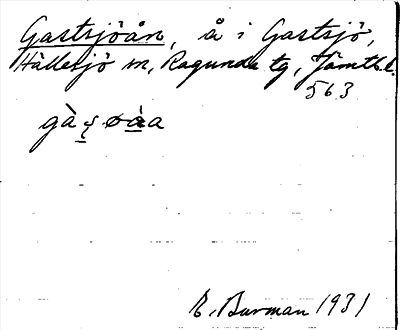 Gastsjöån, å i Gastsjö,
Hällesjö sn, Ragunda tg, Jämtl. l.
563
E. Burman 1931